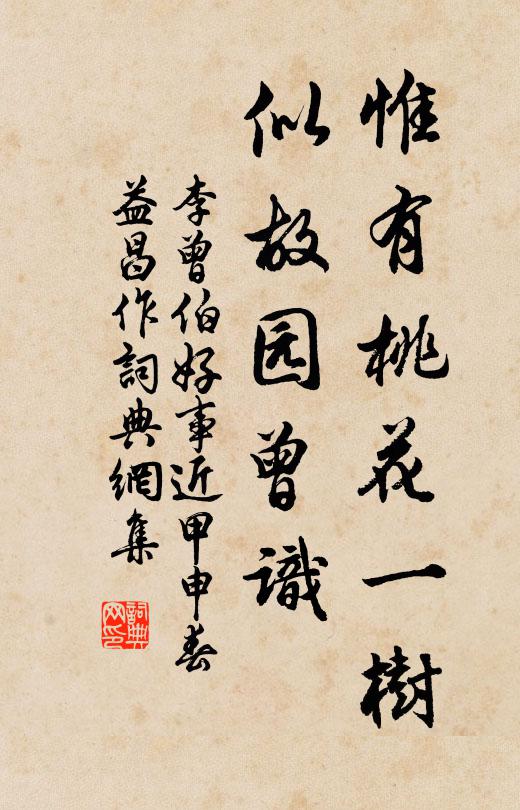 惟有桃花一樹
似故园曾識
李曾伯好事近甲申春
益昌作詞典網集
詞典网印